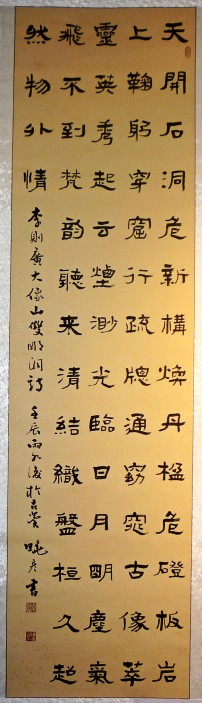 天開石洞危新構煥丹楹危磴板岩
上鞠躬穿窟行疏牕通窈窕古像萃
靈英秀起云煙渺光臨日月明塵氣
飛不到梵韵聽来清結織盤桓久超
然物外情
李則廣大像山雙明洞詩 壬辰雨水後於古 書